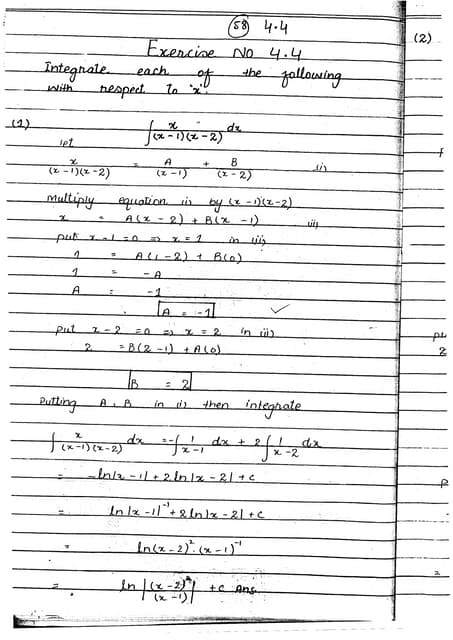 58 4.4
Exercise No 4.4
Integrate each of the following
with respect to 'x'.
(1) ∫ x/(x-1)(x-2) dx
let
x/(x-1)(x-2) = A/(x-1) + B/(x-2) (i)
multiply equation (i) by (x-1)(x-2)
x = A(x-2) + B(x-1) (ii)
put x-1=0 ⇒ x=1 in (ii)
1 = A(1-2) + B(0)
1 = -A
A = -1
A = -1 ✓
put x-2=0 ⇒ x=2 in (ii)
2 = B(2-1) + A(0)
B = 2
Putting A, B in (i) then integrate
∫ x/(x-1)(x-2) dx = -∫ 1/x-1 dx + 2∫ 1/x-2 dx
= -ln|x-1| + 2 ln|x-2| + c
= ln|x-1|⁻¹ + 2 ln|x-2| + c
= ln(x-2)².(x-1)⁻¹
= ln |(x-2)²/(x-1)| + c Ans
(2)